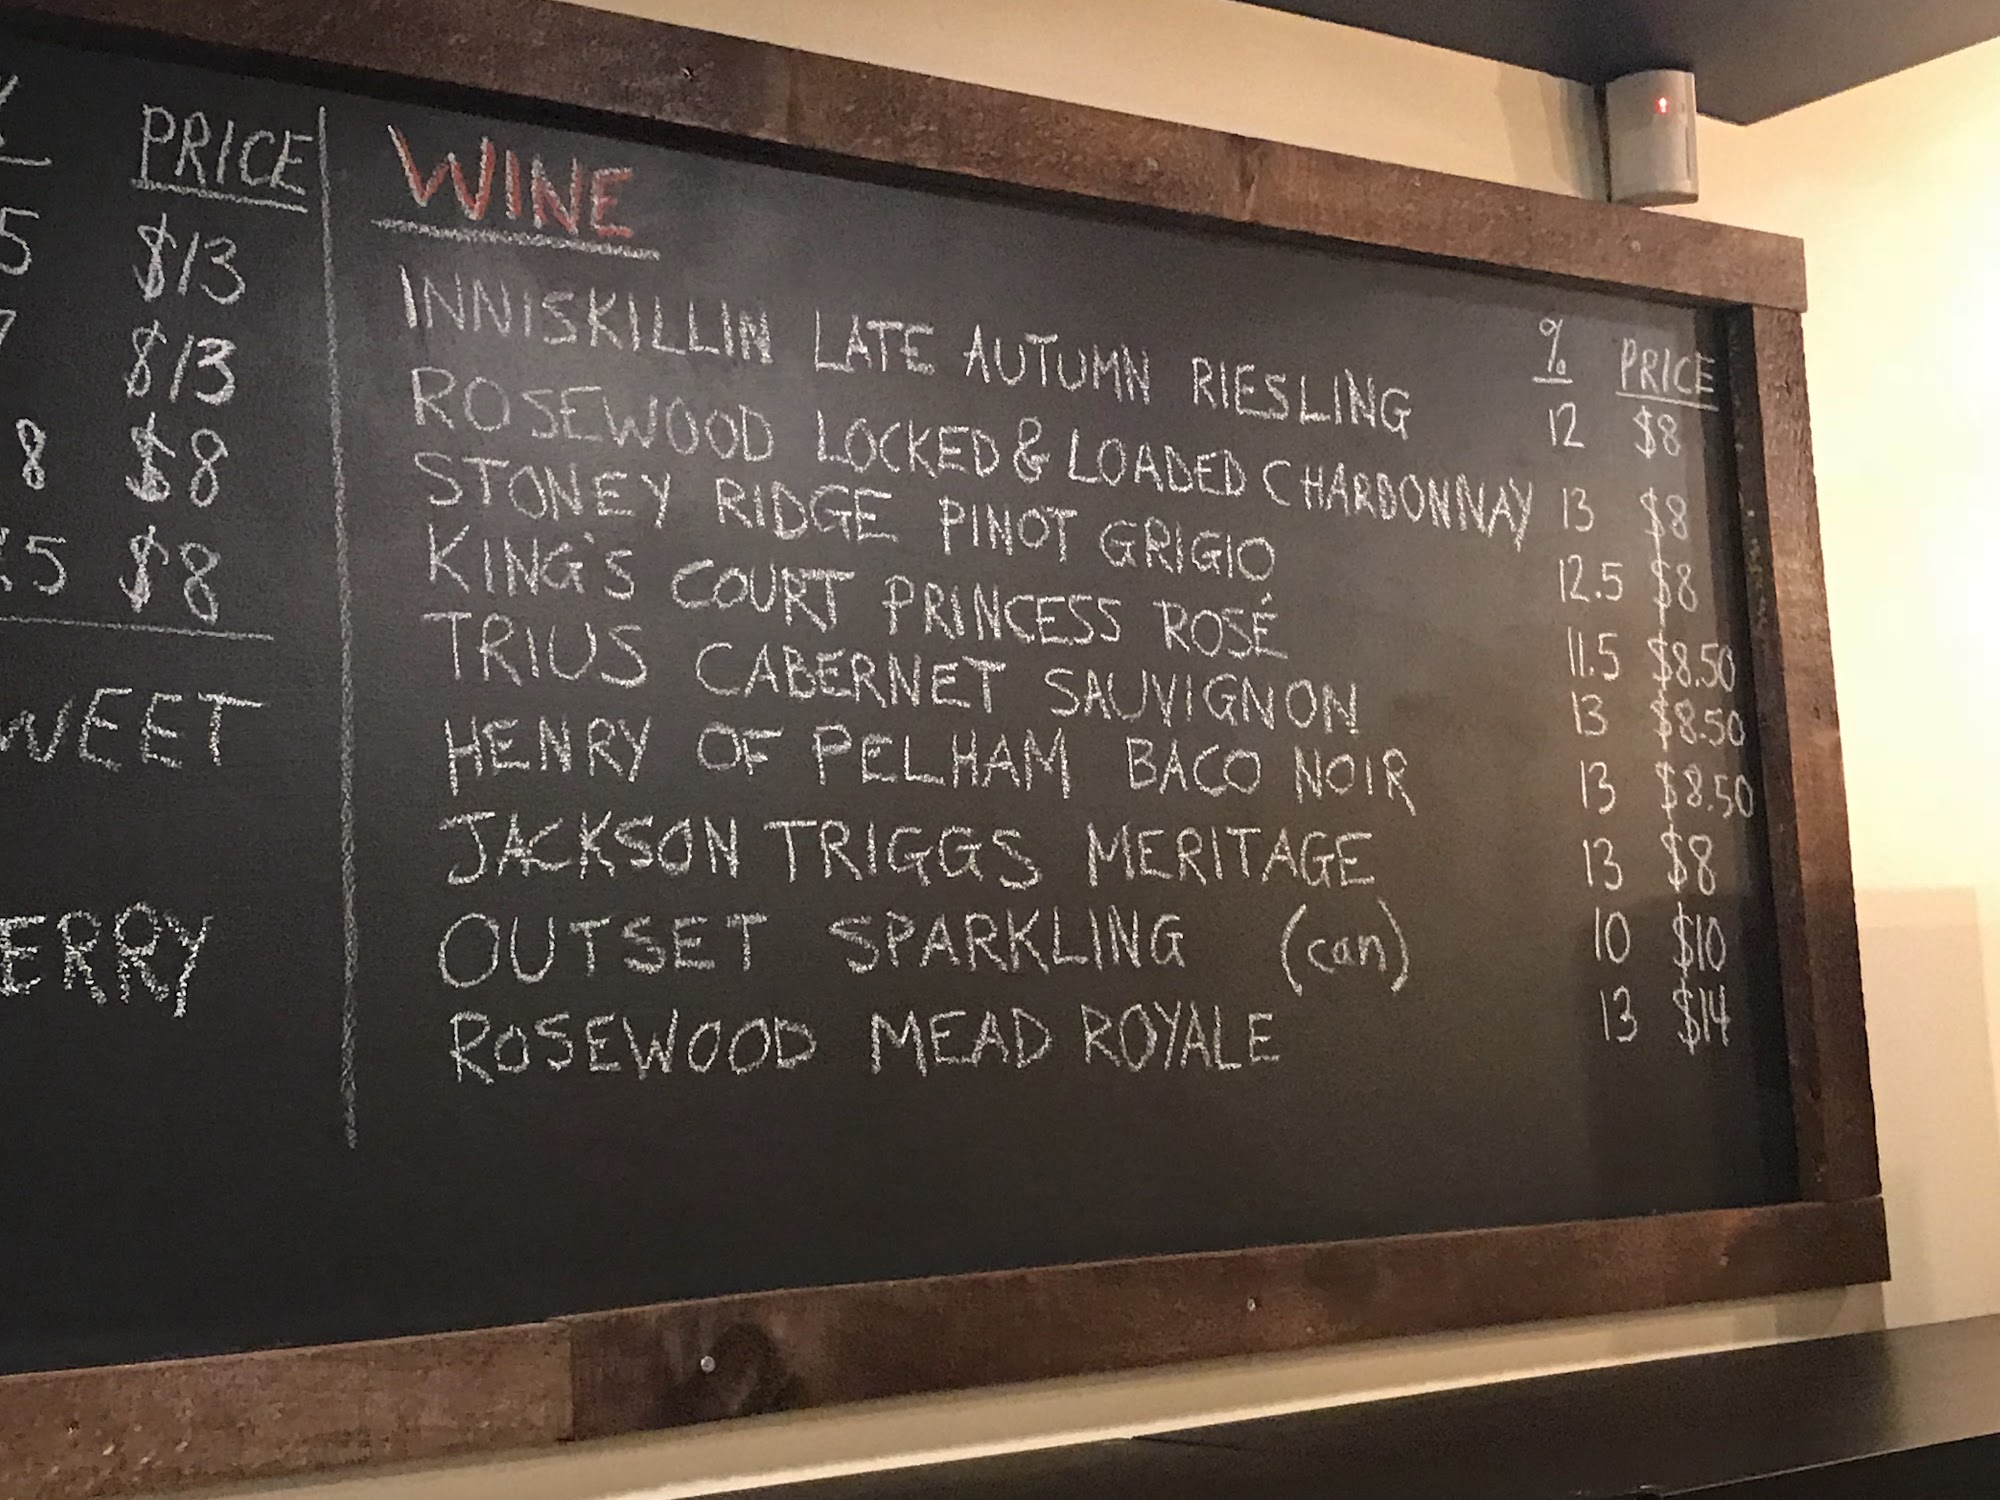 PRICE
5 $13
7 $13
8 $8
.5 $8
WEET
ERRY
WINE
% PRICE
INNISKILLIN LATE AUTUMN RIESLING 12 $8
ROSEWOOD LOCKED & LOADED CHARDONNAY 13 $8
STONEY RIDGE PINOT GRIGIO 12.5 $8
KING'S COURT PRINCESS ROSÉ 11.5 $8.50
TRIUS CABERNET SAUVIGNON 13 $8.50
HENRY OF PELHAM BACO NOIR 13 $8.50
JACKSON TRIGGS MERITAGE 13 $8
OUTSET SPARKLING (can) 10 $10
ROSEWOOD MEAD ROYALE 13 $14